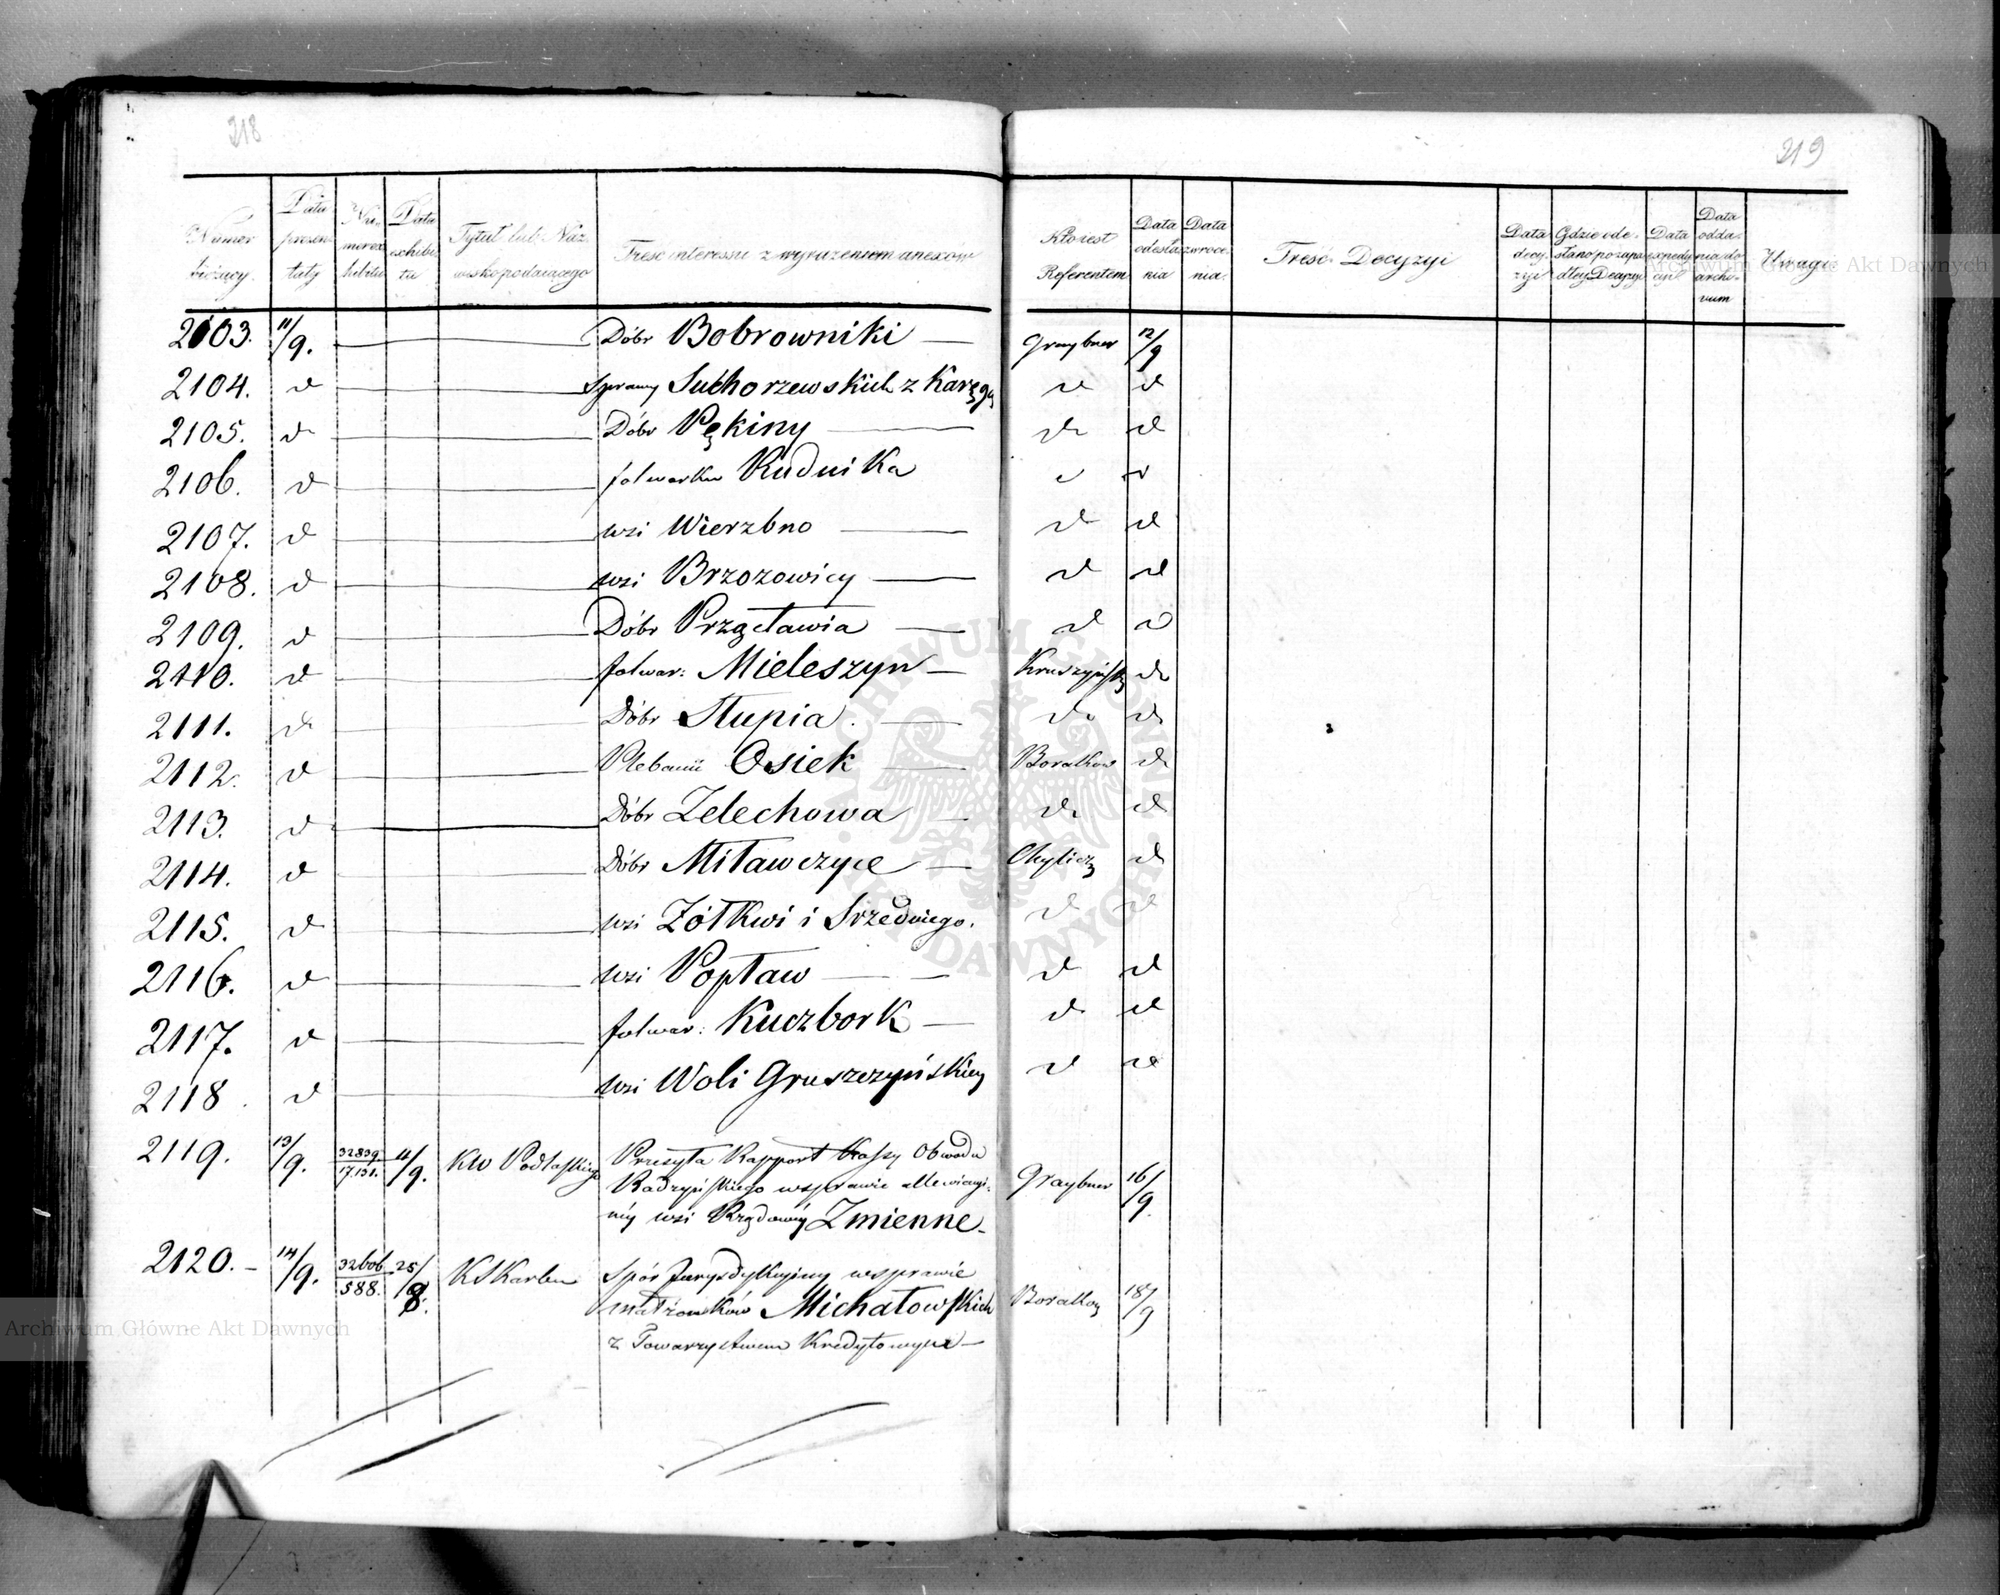 218
219
Numer bieżący.
Data prezentaty
Numer exhibitu
Data exhibita
Tytuł lub Nazwisko podającego
Treść interessu z wyrażeniem anexów
Kto jest Referentem
Data odesłania
Data zwrócenia.
Treść Decyzyi
Data decyzyi
Data expedycyi
Data oddania do archivum
Uwagi
2103. 11/9. Dóbr Bobrowniki Graybner 12/9
2104. d Sprawy Suchorzewskich z Karęgą d d
2105. d Dóbr Pękiny d d
2106. d folwarku Kudnika d d
2107. d wsi Wierzbno d d
2108. d wsi Brzozowicy d d
2109. d Dóbr Przącławia d d
2110. d folwar: Mieleszyn Kruszyński d
2111. d Dóbr Słupia. d d
2112. d Plebanii Osiek d
2113. d Dóbr Zelechowa d d
2114. d Dóbr Miławczyce d
2115. d wsi Zółkwi i Srzedniego. d d
2116. d wsi Popław d d
2117. d folwar: Kuczbork d d
2118. d wsi Woli Gruszczyńskiey d d
2119. 13/9. 32839./17.131. 11/9. KW Podlaskiego Przesyła Rapport Kassy Obwodu
Radzyńskiego wsprawie Graybner 16/9.
wsi Rządowéy Zmienne
2120. 14/9. 32606/588. 25/8. KS Karbu Spór Jurysdykcyiny wsprawie
małżonków Michałowskich 18/9
z Towarzystwem Kredytowym
Archiwum Główne Akt Dawnych
Archiwum Główne Akt Dawnych
ARCHIWUM GŁÓWNE AKT DAWNYCH